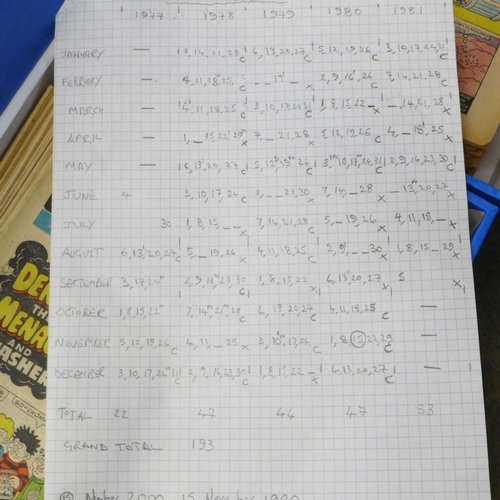 1977 1978 1979 1980 1981
JANUARY — 7,14,21,28 C 6,13,20,27 C 5,12,19,26 C 3,10,17,24,31 C
FEBRUARY — 4,11,18,25 C — — 17 — X 2,9,16,26 C 7,14,21,28 C
MARCH — 4,11,18,25 C 3,10,17,24,31 C 1,8,15,22 — X —,14,21,28 X
APRIL — 1,— 15,22,29 X 7 — 21,28 X 5,12,19,26 C 4,— 18,25 X
MAY — 6,13,20,27 C 5,12,19,26 C 3,10,17,24,31 C 2,9,16,23,30 C
JUNE 4 3,10,17,24 C 2,— — 23,30 X 7,14,— 28 X — 13,20,27 X
JULY 30 1,8,15,— — X 7,14,21,28 C 5,— 19,26 X 4,11,18,— X
AUGUST 6,13,20,27 C 5,— 19,26 X 4,11,18,25 C 2,9,— — 30 X 1,8,15 — 29 X
SEPTEMBER 3,17,24 2,9,16,23,30 C 1,8,15,22 X 6,13,20,27 X 5 X
OCTOBER 1,8,15,22 7,14,21,28 C 6,13,20,27 C 4,11,18,25 C —
NOVEMBER 5,12,19,26 C 4,11,— 25 X 3,10,17,24 C 1,8,15,22,29 C —
DECEMBER 3,10,17,26,31 C 2,9,16,23,30 C 1,8,15,22 — X 6,13,20,27 C —
TOTAL 22 47 44 47 33
GRAND TOTAL 193
15 Number 2000 15 November 1980
DENNIS
THE
MENACE
AND
GNASHER